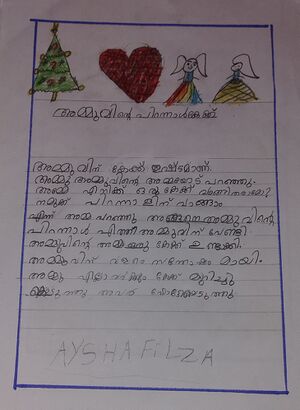 അമ്മുവിന്റെ പിറന്നാൾകേക്ക്
അമ്മുവിന് കേക്ക് ഇഷ്ടമാണ്.
അമ്മു അമ്മുവിന്റെ അമ്മയോട് പറഞ്ഞു.
അമ്മേ എനിക്ക് ഒരു കേക്ക് വാങ്ങിതരാമോ?
നമുക്ക് പിറന്നാളിന് വാങ്ങാം
എന്ന് അമ്മ പറഞ്ഞു അങ്ങനെ അമ്മുവിന്റെ
പിറന്നാൾ എത്തി അമ്മുവിന് വേണ്ടി
അമ്മുവിന്റെ അമ്മ കേക്ക് ഉണ്ടാക്കി.
അമ്മുവിന് വളരെ സന്തോഷം മായി.
അമ്മു എല്ലാവർക്കും കേക്ക് മുറിച്ചു
കൊടുത്തു അവർ ഫോട്ടോയെടുത്തു
AYSHA FiLZA